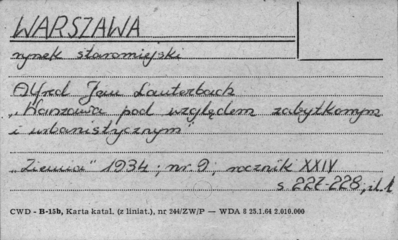 WARSZAWA
rynek staromiejski
Alfred Jan Lauterbach
„Warszawa pod względem zabytkowym
i urbanistycznym"
„Ziemia" 1934; nr. 9; rocznik XXIV
s. 227-228, il. 1
CWD - B-15b, Karta katal. (z liniat.), nr 244/ZW/P — WDA 8 25.1.64 2.010.000